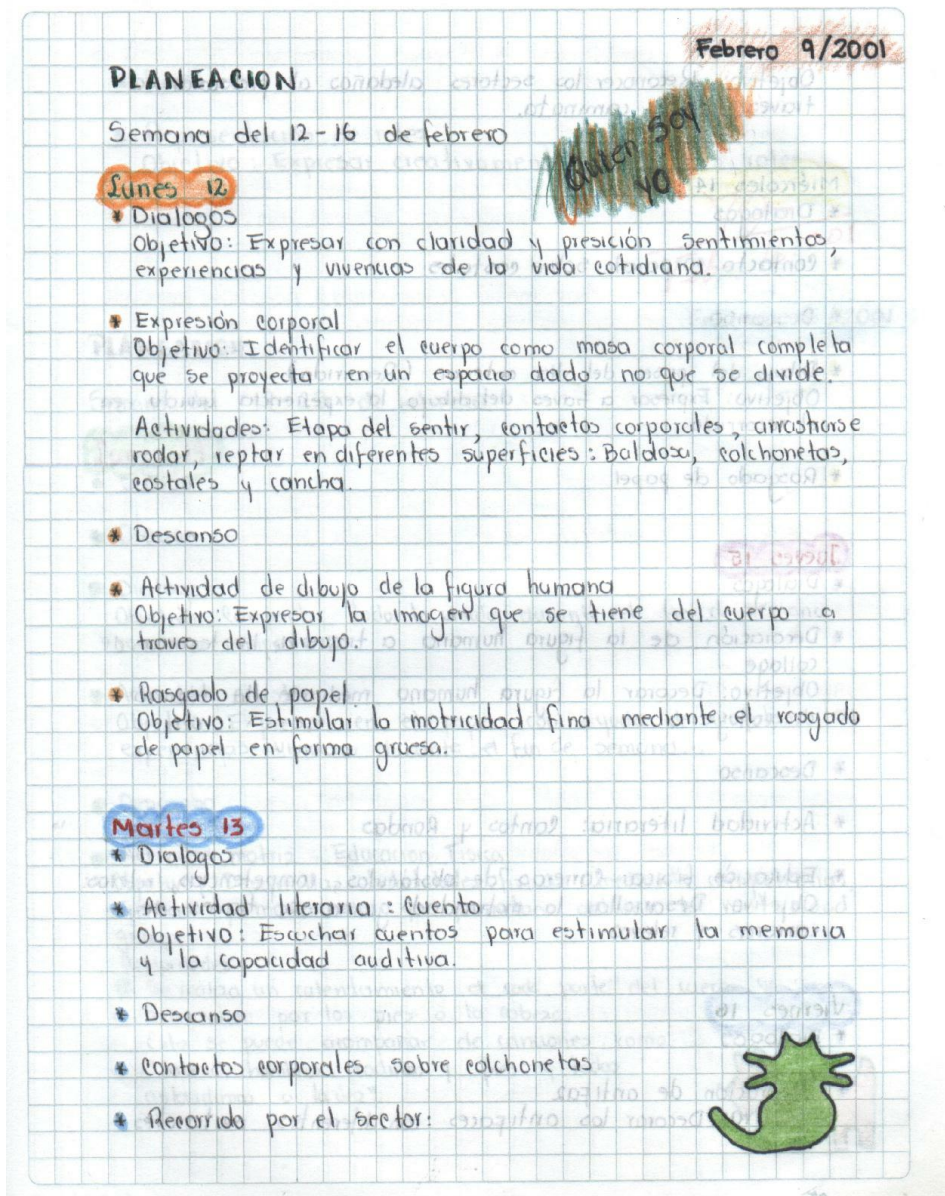 Febrero 9/2001
PLANEACION
Semana del 12-16 de febrero
Quien soy
yo
Lunes 12
* Dialogos
Objetivo: Expresar con claridad y presición sentimientos,
experiencias y vivencias de la vida cotidiana.
* Expresión corporal
Objetivo: Identificar el cuerpo como masa corporal completa
que se proyecta en un espacio dado no que se divide.
Actividades: Etapa del sentir, contactos corporales, arrastrarse
rodar, reptar en diferentes superficies: Baldosa, colchonetas,
costales y cancha.
* Descanso
* Actividad de dibujo de la figura humana
Objetivo: Expresar la imagen que se tiene del cuerpo a
traves del dibujo.
* Rasgado de papel
Objetivo: Estimular la motricidad fina mediante el rasgado
de papel en forma gruesa.
Martes 13
* Dialogos
* Actividad literaria: Cuento
Objetivo: Escuchar cuentos para estimular la memoria
y la capacidad auditiva.
* Descanso
* Contactos corporales sobre colchonetas
* Recorrido por el sector: